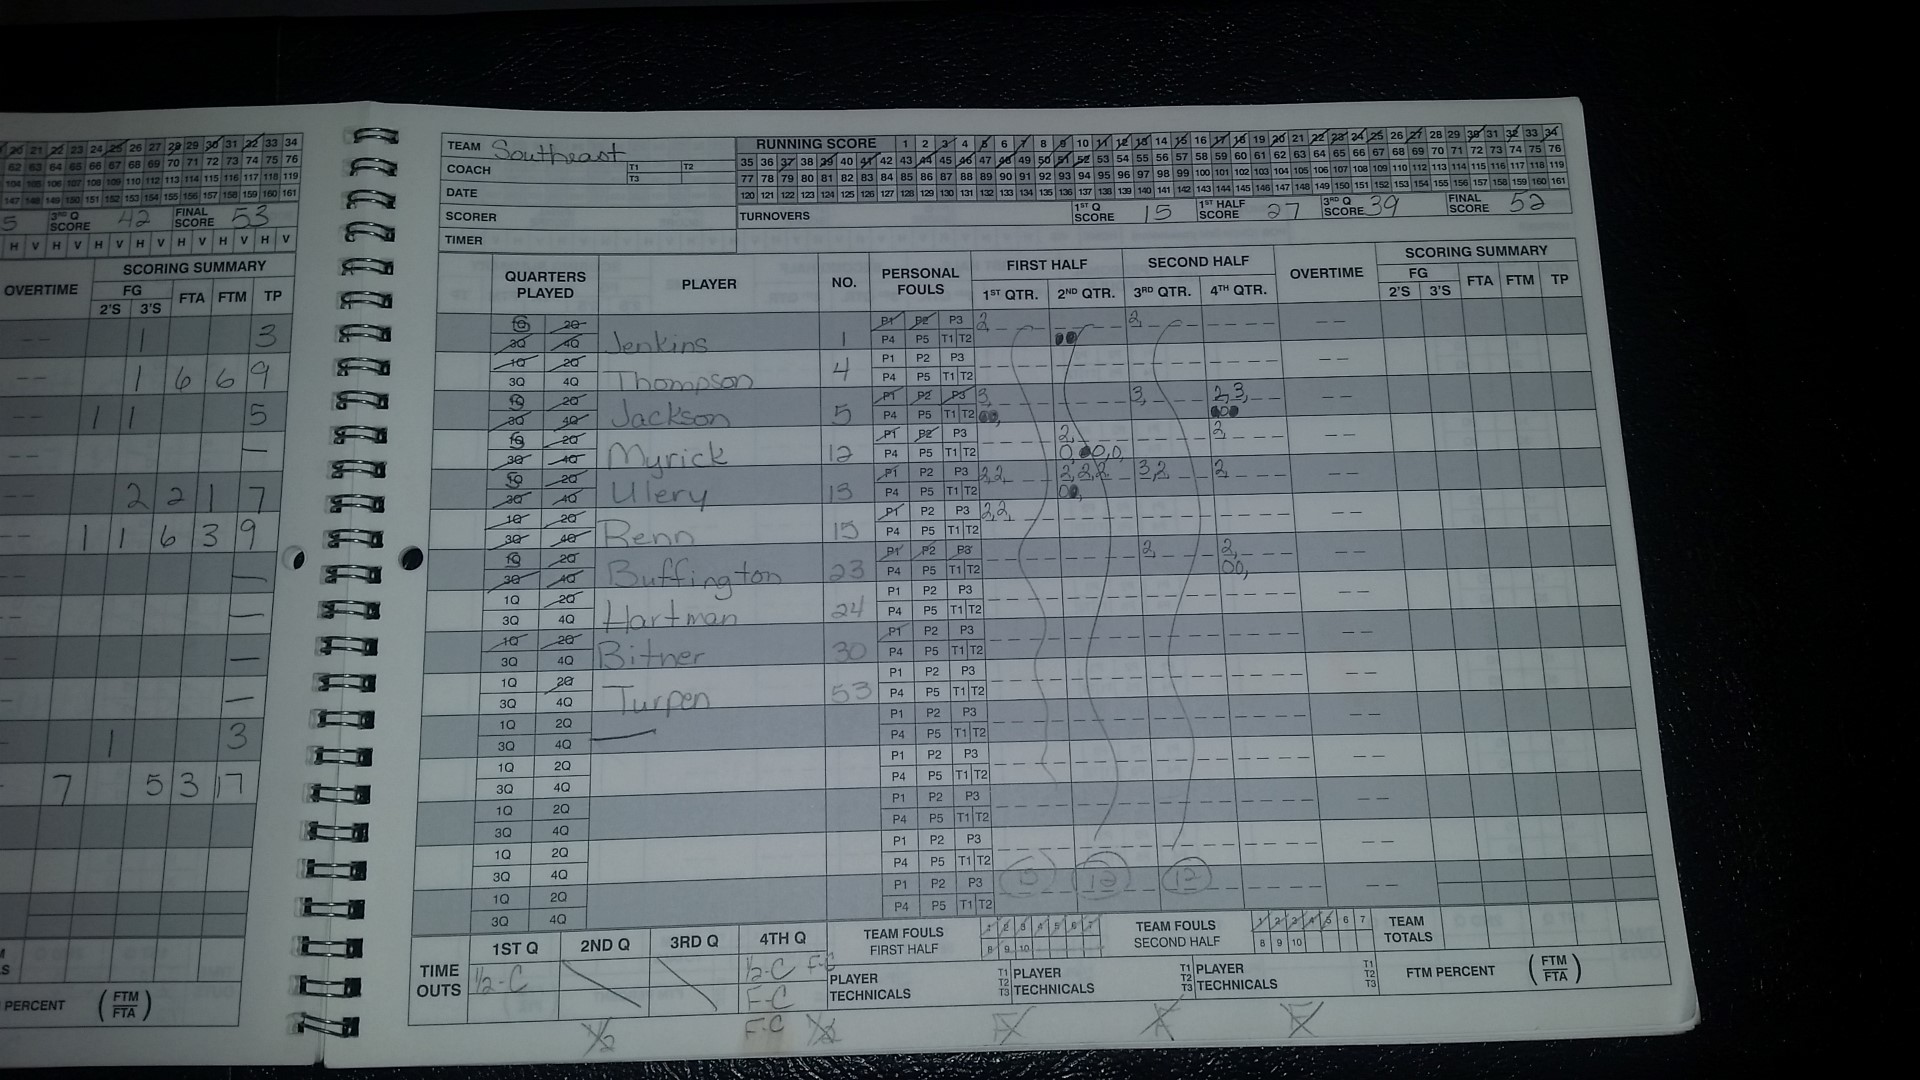 20 21 22 23 24 25 26 27 28 29 30 31 32 33 34
62 63 64 65 66 67 68 69 70 71 72 73 74 75 76
104 105 106 107 108 109 110 112 113 114 115 116 117 118 119
147 148 149 150 151 152 153 154 155 156 157 158 159 160 161
5 3RD Q SCORE 42 FINAL SCORE 53
H V H V H V H V H V H V H V
OVERTIME SCORING SUMMARY
FG FTA FTM TP
2'S 3'S
1 3
1 6 6 9
1 1 5
2 2 1 7
1 1 6 3 9
1 3
7 5 3 17
PERCENT (FTM/FTA)
TEAM Southeast
COACH T1 T2
T3
DATE
SCORER
TIMER
RUNNING SCORE 1 2 3 4 5 6 7 8 9 10 11 12 13 14 15 16 17 18 19 20 21 22 23 24 25 26 27 28 29 30 31 32 33 34
35 36 37 38 39 40 41 42 43 44 45 46 47 48 49 50 51 52 53 54 55 56 57 58 59 60 61 62 63 64 65 66 67 68 69 70 71 72 73 74 75 76
77 78 79 80 81 82 83 84 85 86 87 88 89 90 91 92 93 94 95 96 97 98 99 100 101 102 103 104 105 106 107 108 109 110 111 112 113 114 115 116 117 118 119
120 121 122 123 124 125 126 127 128 129 130 131 132 133 134 135 136 137 138 139 140 141 142 143 144 145 146 147 148 149 150 151 152 153 154 155 156 157 158 159 160 161
TURNOVERS 1ST Q SCORE 15 1ST HALF SCORE 27 3RD Q SCORE 39 FINAL SCORE 52
QUARTERS PLAYED PLAYER NO. PERSONAL FOULS FIRST HALF SECOND HALF OVERTIME SCORING SUMMARY
1ST QTR. 2ND QTR. 3RD QTR. 4TH QTR. FG FTA FTM TP
2'S 3'S
1Q 2Q P1 P2 P3 2 2
3Q 4Q Jenkins 1 P4 P5 T1 T2
1Q 2Q P1 P2 P3
3Q 4Q Thompson 4 P4 P5 T1 T2
1Q 2Q P1 P2 P3 3, 3, 2,3,
3Q 4Q Jackson 5 P4 P5 T1 T2
1Q 2Q P1 P2 P3 2, 2,
3Q 4Q Myrick 12 P4 P5 T1 T2
1Q 2Q P1 P2 P3 2,2, 2,2,2 3,2 2,
3Q 4Q Ulery 13 P4 P5 T1 T2
1Q 2Q P1 P2 P3 2,2,
3Q 4Q Renn 15 P4 P5 T1 T2
1Q 2Q P1 P2 P3 2 2,
3Q 4Q Buffington 23 P4 P5 T1 T2 00,
1Q 2Q P1 P2 P3
3Q 4Q Hartman 24 P4 P5 T1 T2
1Q 2Q P1 P2 P3
3Q 4Q Bitner 30 P4 P5 T1 T2
1Q 2Q P1 P2 P3
3Q 4Q Turpen 53 P4 P5 T1 T2
1Q 2Q P1 P2 P3
3Q 4Q P4 P5 T1 T2
1Q 2Q P1 P2 P3
3Q 4Q P4 P5 T1 T2
1Q 2Q P1 P2 P3
3Q 4Q P4 P5 T1 T2
1Q 2Q P1 P2 P3
3Q 4Q P4 P5 T1 T2
1Q 2Q P1 P2 P3 12 12
3Q 4Q P4 P5 T1 T2
TIME OUTS 1ST Q 2ND Q 3RD Q 4TH Q
1/2-C 1/2-C F-C
F-C
F-C
TEAM FOULS FIRST HALF 1 2 3 4 5 6 7
8 9 10
TEAM FOULS SECOND HALF 1 2 3 4 5 6 7
8 9 10
TEAM TOTALS
PLAYER TECHNICALS T1 T2 T3 PLAYER TECHNICALS T1 T2 T3 PLAYER TECHNICALS T1 T2 T3
FTM PERCENT (FTM/FTA)